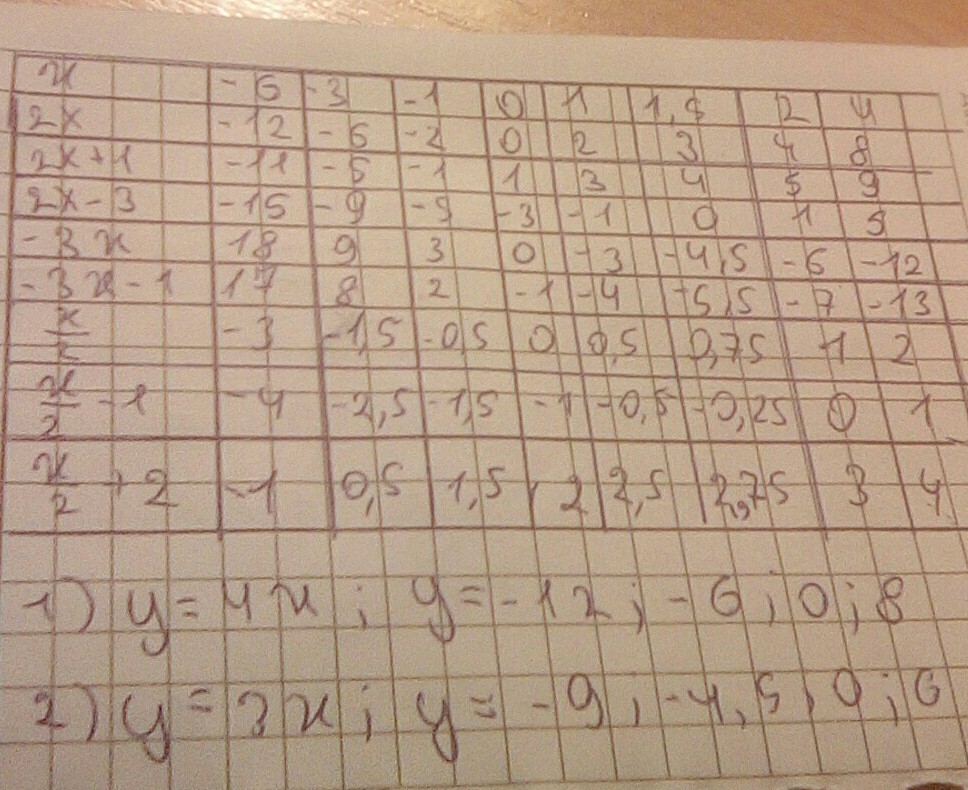 x -6 -3 -1 0 1 1,5 2 4
2x -12 -6 -2 0 2 3 4 8
2x+1 -11 -5 -1 1 3 4 5 9
2x-3 -15 -9 -5 -3 -1 0 1 5
-3x 18 9 3 0 -3 -4,5 -6 -12
-3x-1 17 8 2 -1 -4 -5,5 -7 -13
x/2 -3 -1,5 -0,5 0 0,5 0,75 1 2
x/2 -1 -4 -2,5 -1,5 -1 -0,5 -0,25 0 1
x/2 +2 -1 0,5 1,5 2 2,5 2,75 3 4
1) y=4x; y=-12; -6; 0; 8
2) y=3x; y=-9; -4,5, 0; 6